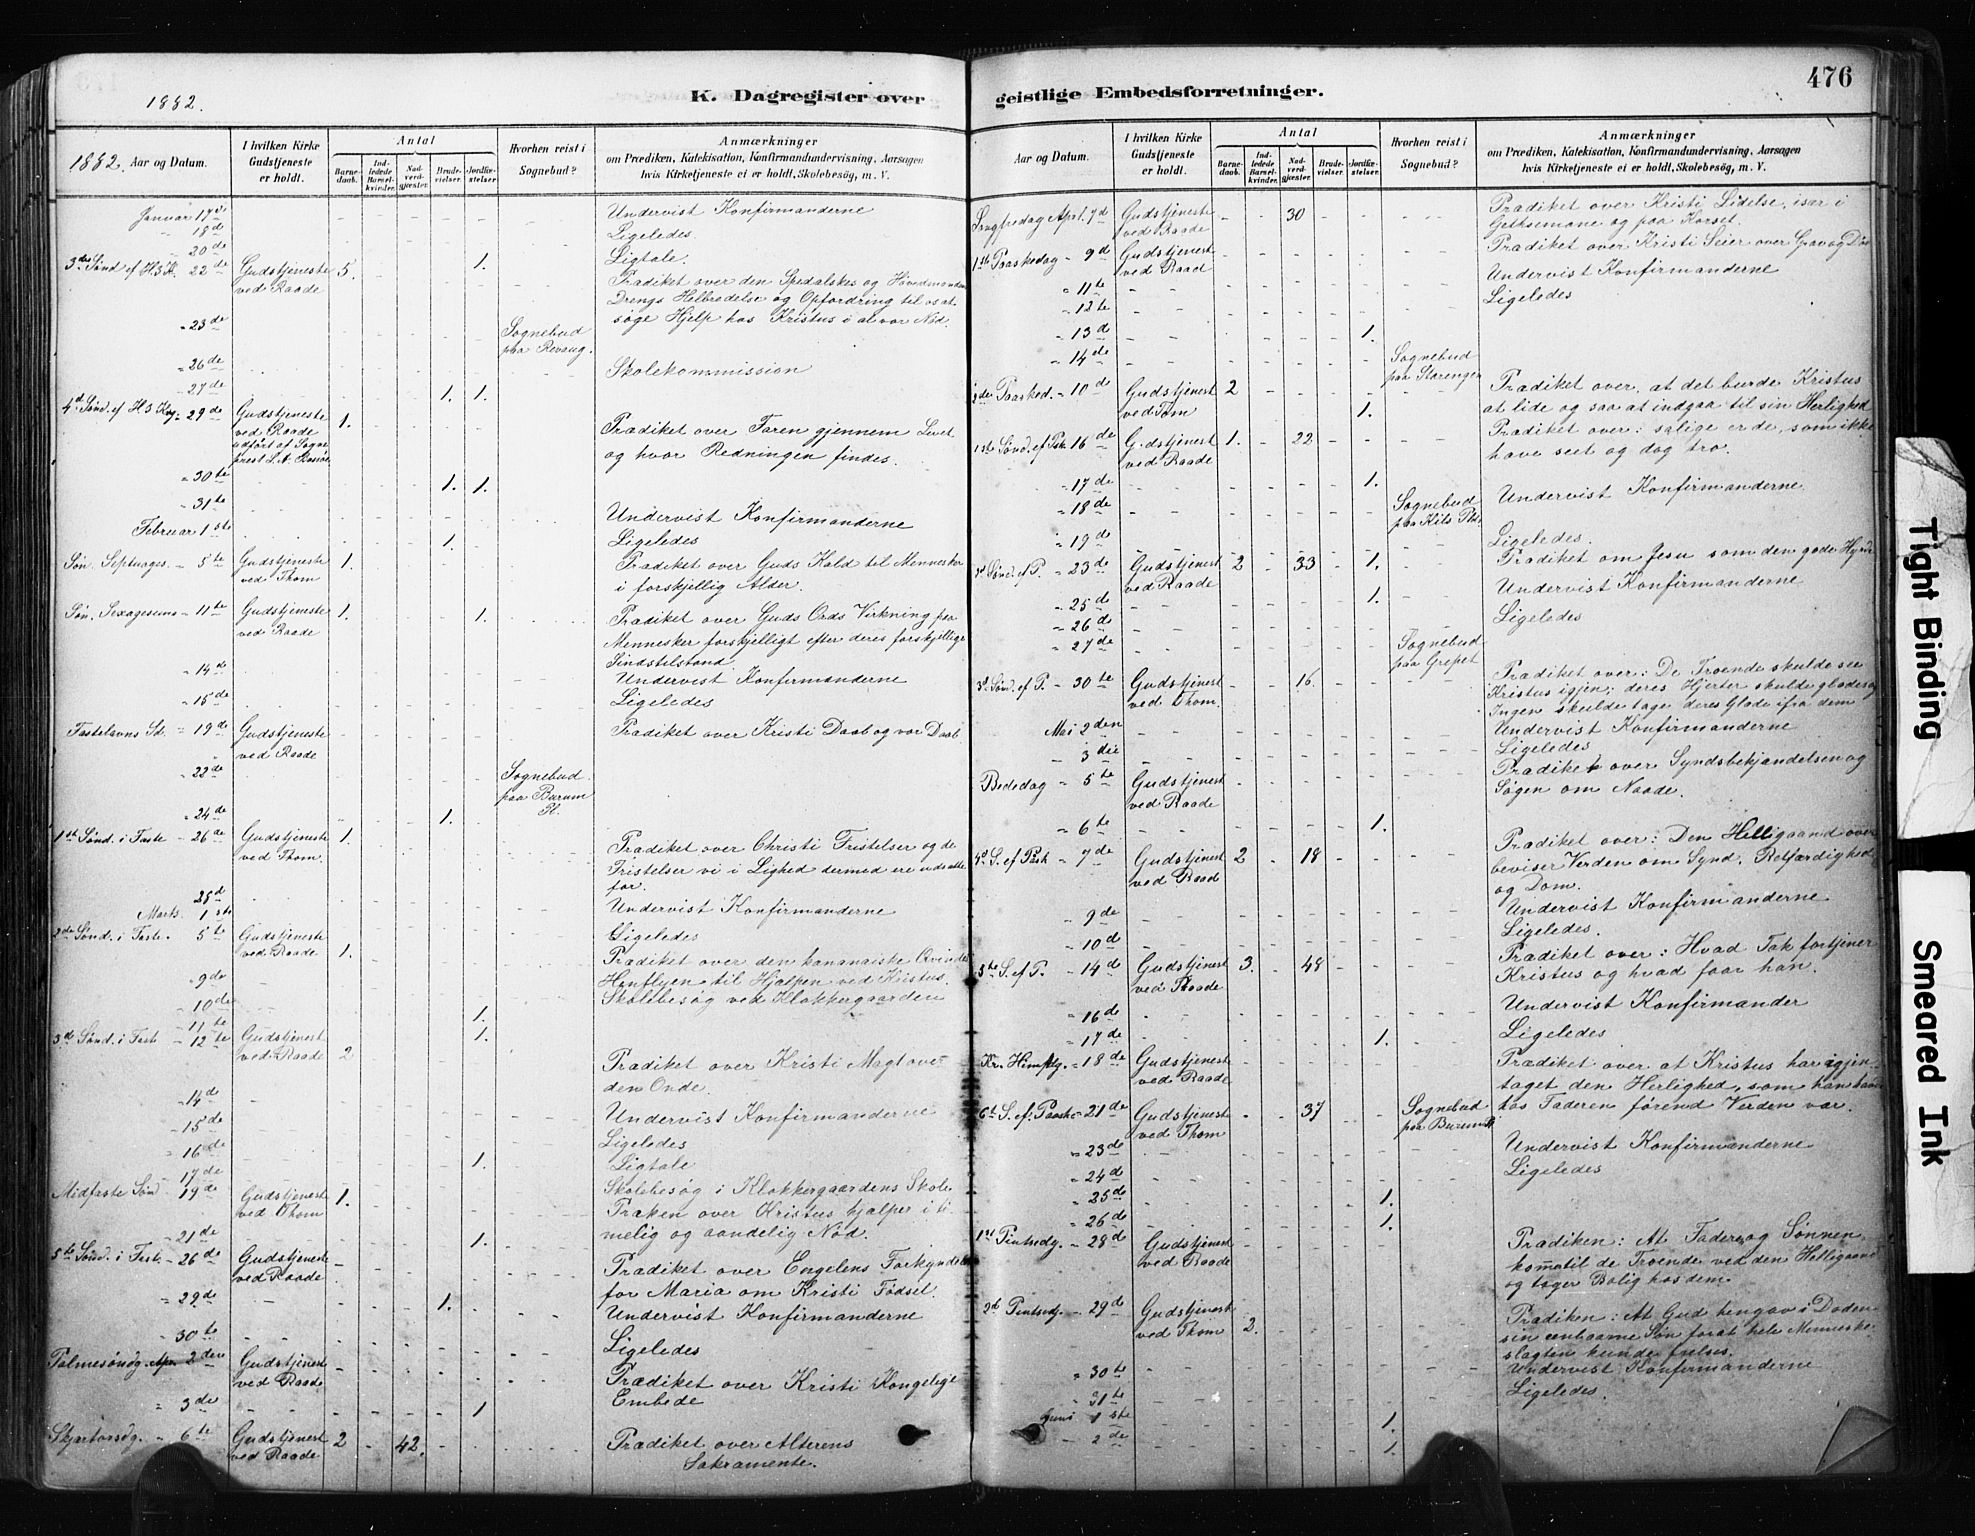 476
1882.
K. Dagregister over geistlige Embedsforretninger.
1882. Aar og Datum.
I hvilken Kirke Gudstjeneste er holdt.
Antal
Barnedaab.
Indledede Barselkvinder.
Nadverdgjæster.
Brudevielser.
Jordfæstelser.
Hvorhen reist i Sognebud?
Anmærkninger
om Prædiken, Katekisation, Konfirmandundervisning, Aarsagen
hvis Kirketjeneste ei er holdt, Skolebesög, m. V.
Januar 17de Undervist Konfirmanderne
18de Ligeledes.
20de 1. Ligtale.
3de Sønd ef H3K. 22de Gudstjeneste ved Raade 5. Prædiket over den Spedalskes og Høvedsmandens
Drengs Helbredelse og Opfordring til os at
søge Hjelp hos Kristus i al vor Nød.
23de Sognebud paa Revaug.
26de Skolekommission
27de 1. 1.
4d Sønd. ef H3 Kg. 29de Gudstjeneste 1. Prædiket over Faren gjennem Livet
ved Raade og hvor Redningen findes.
udført af Sogne
prest L.A.
30te 1. 1.
31te Undervist Konfirmanderne
Februar 1ste 1. Ligeledes
Søn. Septuages. 5te Gudstjeneste ved Thom 1. Prædiket over Guds Kald til Mennesker
i forskjellig Alder.
Søn. Sexagesima 11te Gudstjeneste ved Raade 1. 1. Prædiket over Guds Ords Virkning paa
Mennesker forskjelligt efter deres forskjellige
Sindstilstand.
14de Undervist Konfirmanderne
15de Ligeledes
Fastelavns Sd. 19de Gudstjeneste ved Raade Prædiket over Kristi Daab og vor Daab
22de Sognebud paa Burum Pl.
24de 1.
1ste Sønd. i Faste 26de Gudstjeneste ved Thom. 1. Prædiket over Christi Fristelser og de
Fristelser vi i Lighed dermed ere udsatte
for.
28d Undervist Konfirmanderne
Marts. 1ste Ligeledes
2de Sønd. i Faste. 5te Gudstjeneste ved Raade 1. Prædiket over den kananæiske Qvindes
Henflyen til Hjælpen ved Kristus.
9de Skolebesøg ved Klokkergaarden
10de 1.
11te 1.
3de Sønd. i Fast 12te Gudstjenest ved Raade 2 Prædiket over Kristi Magt over
den Onde.
14de Undervist Konfirmanderne
15de Ligeledes
16de 1. Ligtale
17de Skolebesøg i Klokkergaardens Skole
Midfaste Søn 19de Gudstjenest ved Thom 1. Præken over Kristus hjælper i ti-
melig og aandelig Nød.
21de 1.
5te Sønd. i Fast. 26de Gudstjenest ved Raade Prædiket over Engelens Forkyndelse
for Maria om Kristi Fødsel.
29de 1. Undervist Konfirmanderne
30te Ligeledes
Palmesøndg. Apr. 2den Gudstjenest ved Raade Prædiket over Kristi Kongelige
Embede
3de 1
Skjærtorsdg. 6te Gudstjenest ved Raade 2 42. Prædiket over Alterens
Sakramente.
Aar og Datum.
I hvilken Kirke Gudstjeneste er holdt.
Antal
Barnedaab.
Indledede Barselkvinder.
Nadverdgjæster.
Brudevielser.
Jordfæstelser.
Hvorhen reist i Sognebud?
Anmærkninger
om Prædiken, Katekisation, Konfirmandundervisning, Aarsagen
hvis Kirketjeneste ei er holdt, Skolebesög, m. V.
Langfredag Apri. 7d Gudstjeneste ved Raade 30 Prædiket over Kristi Lidelse, især i
Gethsemane og paa Korset.
1ste Paaskedag 9d Gudstjenest ved Raad Prædiket over Kristi Seier over Grav og Død
11te Undervist Konfirmanderne
12te Ligeledes
13d 1.
14de Sognebud paa Starengen
2den Paasked. 10de Gudstjenest ved Tom 2 1. Prædiket over, at det burde Kristus
at lide og saa at indgaa til sin Herlighed
1ste Sønd. ef Psk 16de Gudstjenest ved Raade 1. 22 Prædiket over: salige er de, som ikke
have seet og dog tro.
17de 1.
18de Sognebud paa Kils Pl. Undervist Konfirmanderne.
19de Ligeledes.
2d Sønd. ef P. 23de Gudstjenest ved Raade 2 33 1. Prædiket om Jesu som den gode Hyrde
25de 1. Undervist Konfirmanderne
26de Ligeledes
27de Sognebud paa Grepet
3d Sønd. ef P. 30te Gudstjenest ved Thom. 16. Prædiket over: De Troende skulde see
Kristus igjen; deres Hjerter skulde glædes og
Ingen skulde tage deres Glæde ifra dem
Mai 2den Undervist Konfirmanderne
3die Ligeledes
Bededag 5te Gudstjenest ved Raade Prædiket over Syndsbekjendelsen og
Søgen om Naade.
6te 1.
4d S. ef Pask 7de Gudstjenest ved Raad 2 18 Prædiket over: Den Helligaand over-
beviser Verden om Synd, Retfærdighed
og Dom.
9de Undervist Konfirmanderne
10de Ligeledes.
5te S. ef P. 14d Gudstjenest ved Raade 3. 48 Prædiket over: Hvad Tak fortjener
Kristus og hvad faar han.
16de Undervist Konfirmander
17de 1. Ligeledes
Kr. Himfdg. 18de Gudstjenest ved Raade Prædiket over at Kristus har igjen-
taget den Herlighed, som han havde
hos Faderen førend Verden var.
6te S. ef. Paaske 21de Gudstjenest ved Thom 37 Sognebud paa Burum
23de Undervist Konfirmanderne
24de Ligeledes
25de 1.
26de 1.
1ste Pintsedg. 28d Gudstjenest ved Raade Prædiken: At Faderen og Sønnen
komm til de Troende ved den Helligaand
og tager Bolig hos dem.
2d Pintsedg. 29de Gudstjenest ved Thom 2. Prædiken: At Gud hengav i Døden
sin enbaarne Søn forat hele Menneske-
slægten kunde frelses.
30te Undervist Konfirmanderne
31te Ligeledes.
Juni 1ste 1.
2de 1.
Tight Binding
Smeared Ink